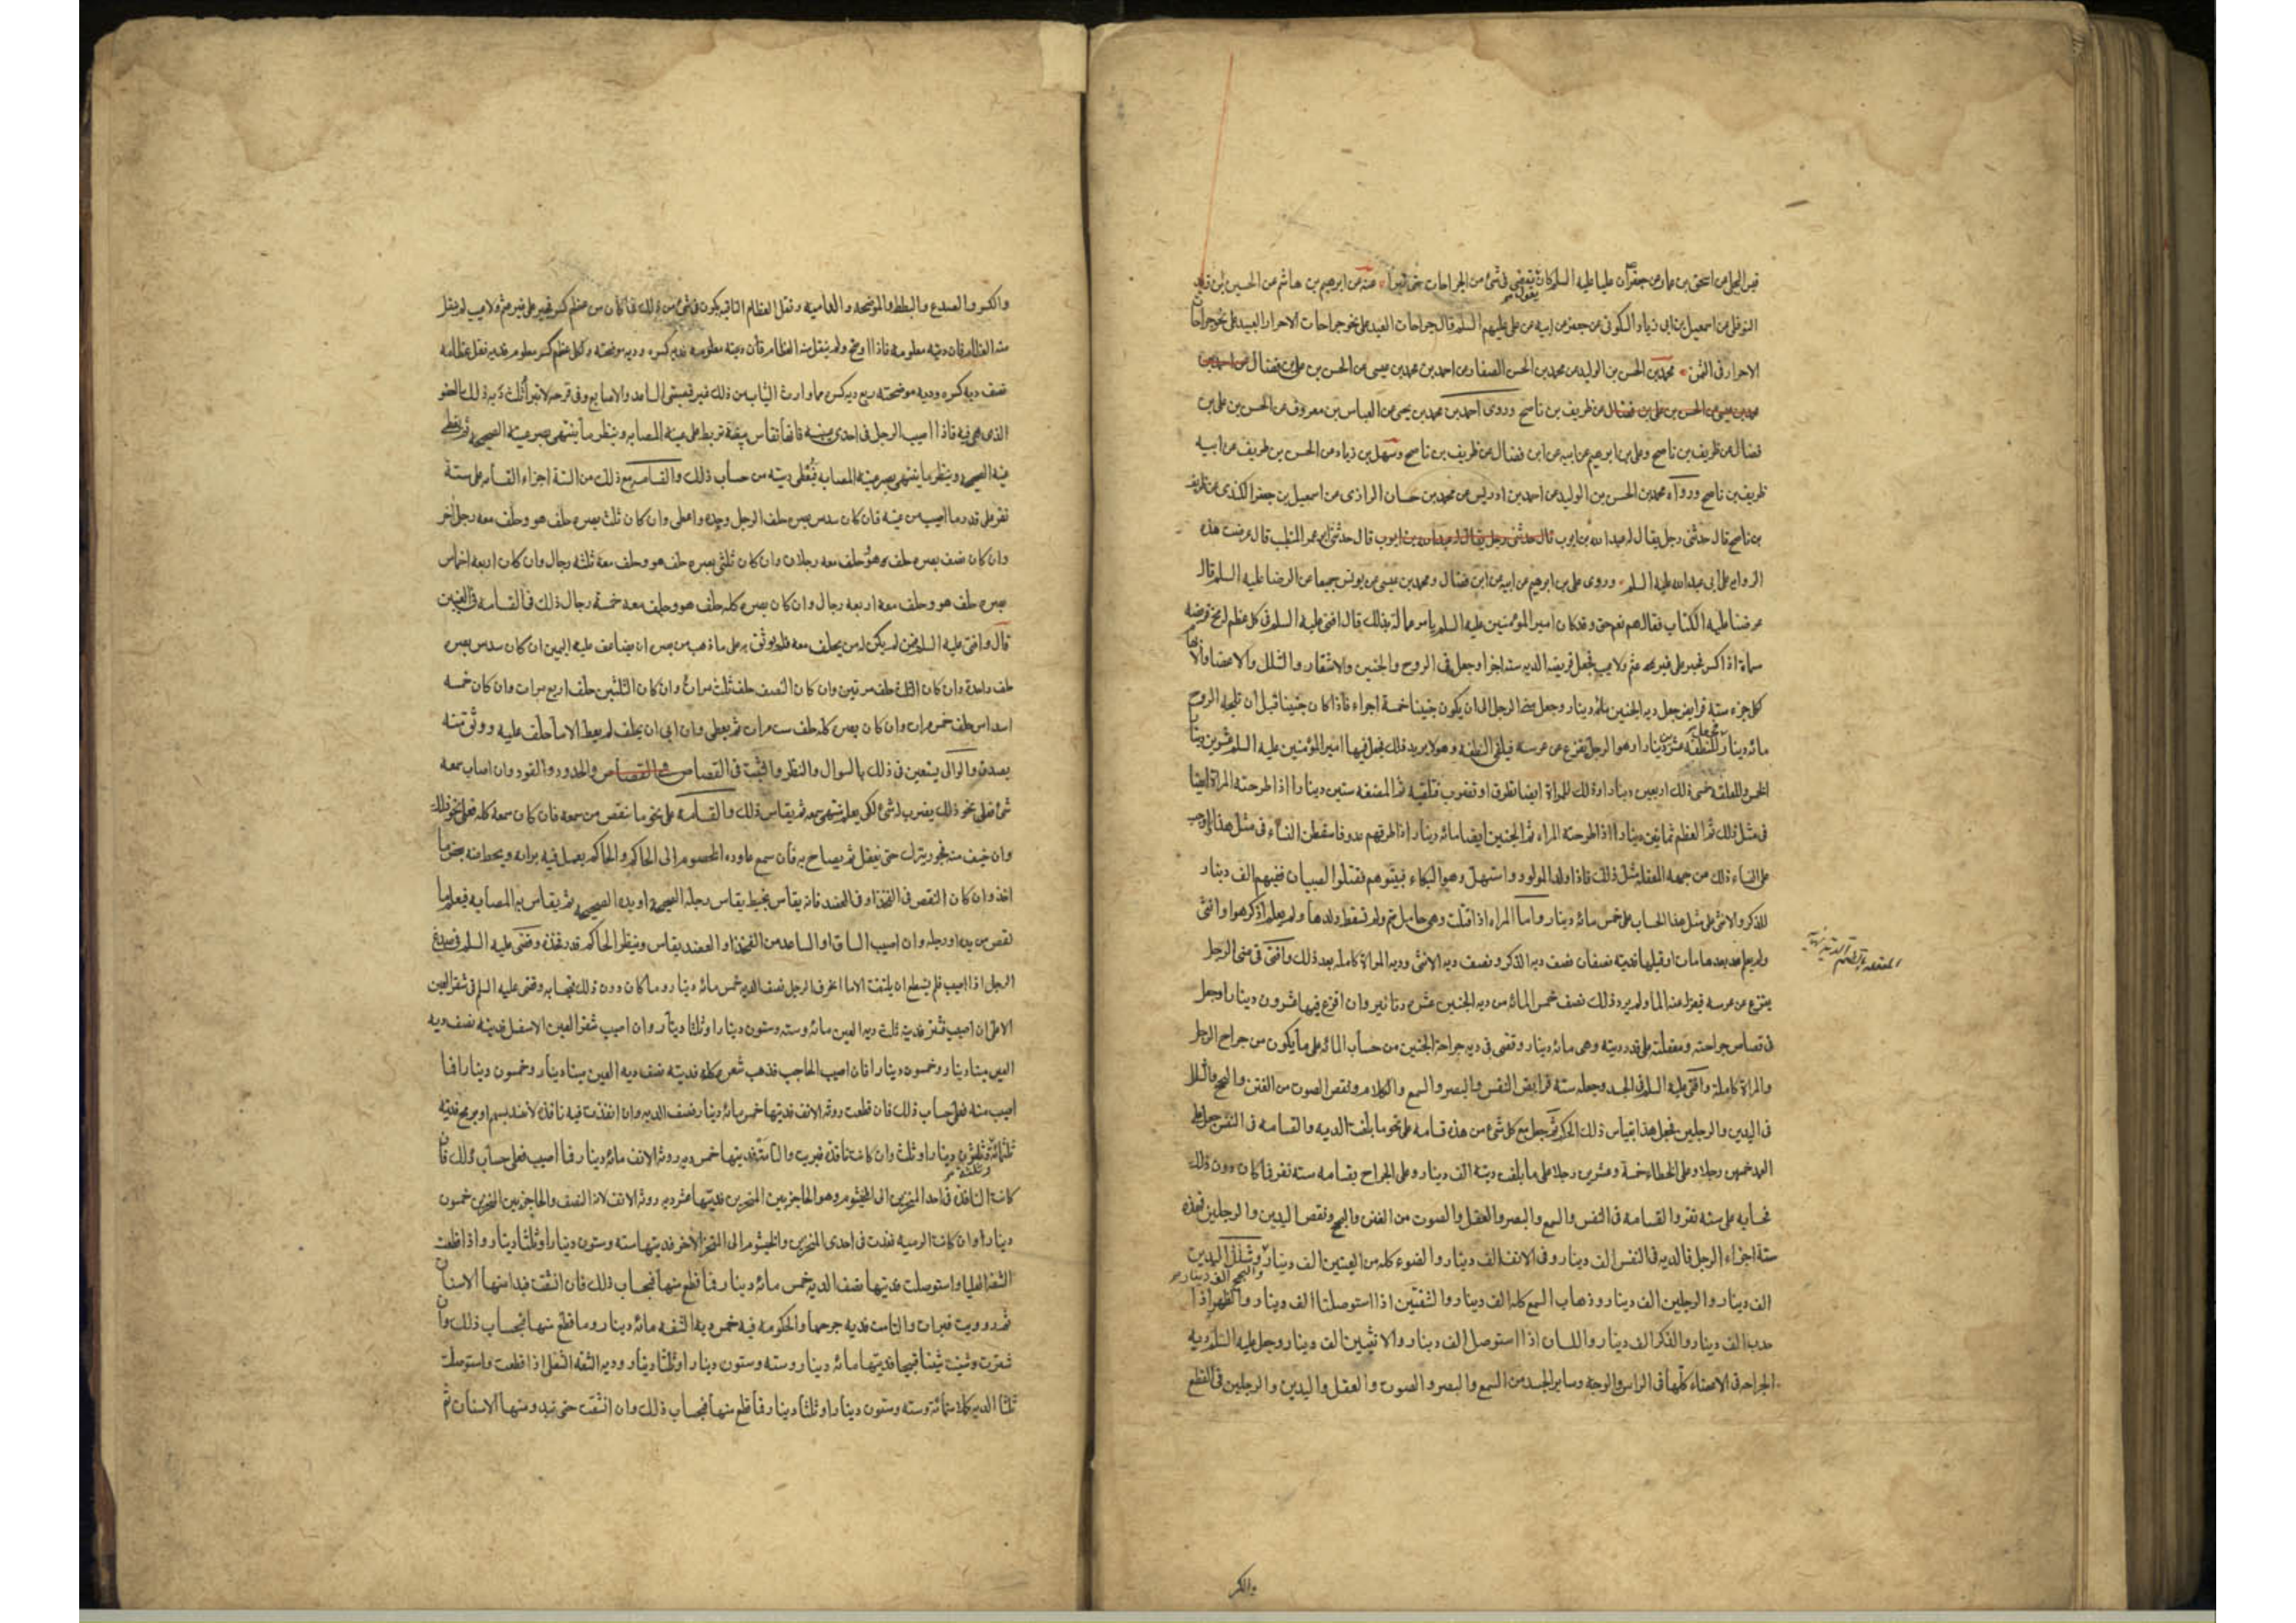 عن اسحق بن عمار عن جعفر ان عليا عليه السلم كان يقول لا يقضى فى شئ من الجراحات حتى تبرأ عنه عن ابرهيم بن هاشم عن الحسين بن يزيد
النوفلى عن اسمعيل بن ابى زياد السكونى عن جعفر عن ابيه عن على عليهم السلم قال جراحات العبيد على نحو جراحات الاحرار
الاحرار فى الثمن محمد بن الحسن بن الوليد عن محمد بن الحسن الصفار عن احمد بن محمد بن عيسى عن الحسن بن على بن فضال
محمد بن عيسى عن الحسن بن على بن فضال عن ظريف بن ناصح وروى احمد بن محمد بن يحيى عن العباس بن معروف عن الحسن بن على بن
فضال عن ظريف بن ناصح وعلى بن ابرهيم عن ابيه عن ابن فضال عن ظريف بن ناصح وسهل بن زياد عن الحسن بن ظريف عن ابيه
ظريف بن ناصح ورواه محمد بن الحسن بن الوليد عن احمد بن ادريس عن محمد بن حسان الرازى عن اسمعيل بن جعفر الكندى عن ظريف
بن ناصح قال حدثنى رجل يقال له عبد الله بن ايوب قال حدثنى رجل يقال له عبد الله بن ايوب قال حدثنى ابو عمر المتطبب قال عرضت هذه
الروايه على ابى عبد الله عليه السلم وروى على بن ابرهيم عن ابيه عن ابن فضال ومحمد بن عيسى عن يونس جميعا عن الرضا عليه السلم قالا
عرضنا عليه الكتاب فقال هو نعم حق وقد كان امير المؤمنين عليه السلم يامر عماله بذلك قال افتى عليه السلم فى كل عظم له مخ فريضه
مسماة اذا كسر فجبر على غير عثم ولا عيب فجعل فريضه الديه ستة اجزا وجعل فى الروح والجنين والاشفار والشلل والاعضا والابهام
كل جزء ستة فرايض جعل ديه الجنين مائه دينار وجعل منى الرجل الى ان يكون جنينا خمسة اجزاء فاذا كان جنينا قبل ان تلجه الروح
مائه دينار فجعل للنطفه عشرين دينارا وهو الرجل يفزع عن عرسه فيلقى النطفه وهو لا يريد ذلك فجعل فيها امير المؤمنين عليه السلم عشرين دينارا
الخمس وللعلقه خمسى ذلك اربعين دينارا وذلك للمراة ايضا تطرق او تضرب فتلقيه ثم المضغه ستين دينارا اذا طرحته المراة ايضا
فى مثل ذلك ثم العظم ثمانين دينارا اذا طرحته المراه ثم الجنين ايضا مائه دينار اذا طرقهم عدو فاسقطن النساء فى مثل هذا اوجب
على النساء ذلك من جهه المعقله مثل ذلك فاذا ولد المولود واستهل وهو البكاء فبيتوهم فقتلوا الصبيان ففيهم الف دينار
للذكر والانثى على مثل هذا الحساب على خمس مائه دينار واما المراه اذا قتلت وهى حامل متم ولم تسقط ولدها ولم يعلم اذكر هو او انثى
ولم يعلم بعدها مات او قبلها فديته نصفان نصف ديه الذكر ونصف ديه الانثى وديه المراة كامله بعد ذلك وافتى فى منى الرجل
يفزع عن عرسه فيعزل عنها الماء ولم يرد ذلك نصف خمس المائه من ديه الجنين عشرة دنانير وان افرغ فيها عشرون دينارا وجعل
فى قصاص جراحته ومعقلته على قدر ديته وهى مائه دينار وقضى فى ديه جراحة الجنين من حساب المائه على ما يكون من جراح الرجل
والمراة كاملة وافتى عليه السلم فى الجسد وجعله ستة فرايض النفس والبصر والسمع والكلام ونقص الصوت من الغنن والبحح والشلل
فى اليدين والرجلين فجعل هذا بقياس ذلك الحكم ثم جعل مع كل شئ من هذه قسامه على نحو ما بلغت الديه والقسامه فى النفس جعل على
العمد خمسين رجلا وعلى الخطاء خمسة وعشرين رجلا على ما بلغت ديته الف دينار وعلى الجراح بقسامه ستة نفر فما كان دون ذلك
فحسابه على ستة نفر والقسامه فى النفس والسمع والبصر والعقل والصوت من الغنن والبحح ونقص اليدين والرجلين فهذه
ستة اجزاء الرجل فالديه فى النفس الف دينار وفى الانف الف دينار والضوء كله من العينين الف دينار والبحح الف دينار وشلل اليدين
الف دينار والرجلين الف دينار وذهاب السمع كله الف دينار والشفتين اذا استوصلتا الف دينار والظهر اذا
حدب الف دينار والذكر الف دينار واللسان اذا استوصل الف دينار والانثيين الف دينار وجعل عليه السلم ديه
الجراحه فى الاعضاء كلها فى الراس والوجه وساير الجسد من السمع والبصر والصوت والعقل واليدين والرجلين فى القطع
والكسر
والكسر والصدع والبطط والموضحه والداميه ونقل العظام الناقبه يكون فى شئ من ذلك فما كان من عظم كسر فجبر على غير عثم ولا عيب لم ينقل
منه العظام فان ديته معلومه فاذا اوضح ولم ينقل منه العظام فان ديته معلومه فديه كسره وديه موضحته ولكل عظم كسر معلوم فديه نقل عظامه
نصف ديه كسره وديه موضحته ربع ديه كسره مما وارت الثياب من ذلك غير قصبتى الساعد والاصابع وفى قرحه لا تبرا ثلث ديه ذلك العضو
الذى هى فيه فاذا اصيب الرجل فى احدى عينيه فانها تقاس ببيضة تربط على عينه المصابه وينظر ما ينتهى بصر عينه الصحيحه ثم يغطى
عينه الصحيحه وينظر ما ينتهى بصر عينه المصابه فيعطى ديته من حساب ذلك والقسامه مع ذلك من الستة اجزاء القسامه على ستة
نفر على قدر ما اصيب من عينه فان كان سدس بصره حلف الرجل وحده واعطى وان كان ثلث بصره حلف هو وحلف معه رجل اخر
وان كان نصف بصره حلف هو وحلف معه رجلان وان كان ثلثى بصره حلف هو وحلف معه ثلثه رجال وان كان اربعه اخماس
بصره حلف هو وحلف معه اربعه رجال وان كان بصره كله حلف هو وحلف معه خمسة رجال ذلك فى القسامه فى العينين
قال وافتى عليه السلم فمن لم يكن له من يحلف معه فلم يوثق به على ما ذهب من بصره ان يضاعف عليه اليمين ان كان سدس بصره
حلف واحدة وان كان الثلث حلف مرتين وان كان النصف حلف ثلث مرات وان كان الثلثين حلف اربع مرات وان كان خمسه
اسداس حلف خمس مرات وان كان بصره كله حلف ست مرات ثم يعطى وان ابى ان يحلف لم يعط الا ما حلف عليه ووثق منه
بصدق والوالى يستعين فى ذلك بالسوال والنظر والتثبت فى القصاص والقصاص والحدود والقود وان اصاب سمعه
شئ فعلى نحو ذلك يضرب له شئ لكى يعلم منتهى سمعه ثم يقاس ذلك والقسامه على نحو ما نقص من سمعه فان كان سمعه كله فعلى نحو ذلك
وان خيف منه فجور يترك حتى يغفل ثم يصاح به فان سمع عاوده الخصوم الى الحاكم والحاكم يعمل فيه برايه ويحط عنه بعض ما
اخذ وان كان النقص فى الفخذ او فى العضد فانه يقاس بخيط يقاس رجله الصحيحه او يده الصحيحه ثم يقاس به المصابه فيعلم ما
نقص من يده او رجله وان اصيب الساق او الساعد من الفخذ او العضد يقاس وينظر الحاكم قدر فخذه وقضى عليه السلم فى صدغ
الرجل اذا اصيب فلم يستطع ان يلتفت الا ما انحرف الرجل نصف الديه خمس مائه دينار وما كان دون ذلك فبحسابه وقضى عليه السلم فى شفر العين
الاعلى ان اصيب فشتر فديته ثلث ديه العين مائه وسته وستون دينارا وثلثا دينار وان اصيب شفر العين الاسفل فديته نصف ديه
العين مئتا دينار وخمسون دينارا فان اصيب الحاجب فذهب شعره كله فديته نصف ديه العين مئتا دينار وخمسون دينارا فما
اصيب منه فعلى حساب ذلك فان قطعت روثه الانف فديتها خمس مائه دينار نصف الديه وان انفذت فيه نافذه لا تنسد بسهم او برمح فديته
ثلثمائه وثلثه وثلثون دينارا وثلث وان كانت نافذه فبرت والتامت فديتها خمس ديه روثه الانف مائه دينار فما اصيب فعلى حساب ذلك فان
كانت النافذه فى احد المنخرين الى الخيشوم وهو الحاجز بين المنخرين فديتها عشر ديه روثه الانف لانه النصف والحاجز بين المنخرين خمسون
دينارا وان كانت الرميه نفذت فى احدى المنخرين والخيشوم الى المنخر الاخر فديتها سته وستون دينارا وثلثا دينار واذا قطعت
الشفه العليا واستوصلت فديتها نصف الديه خمس مائه دينار فما قطع منها فبحساب ذلك فان انشقت فبدا منها الاسنان
ثم دوويت فبرات والتامت فديه جرحها والحكومه فيه خمس ديه الشفه مائه دينار وما قطع منها فبحساب ذلك وان
شترت وشينت شينا قبيحا فديتها مائه دينار وسته وستون دينارا وثلثا دينار وديه الشفه السفلى اذا قطعت واستوصلت
ثلثا الديه كملا ستمائة وسته وستون دينارا وثلثا دينار فما قطع منها فبحساب ذلك وان انشقت حتى تبدو منها الاسنان ثم